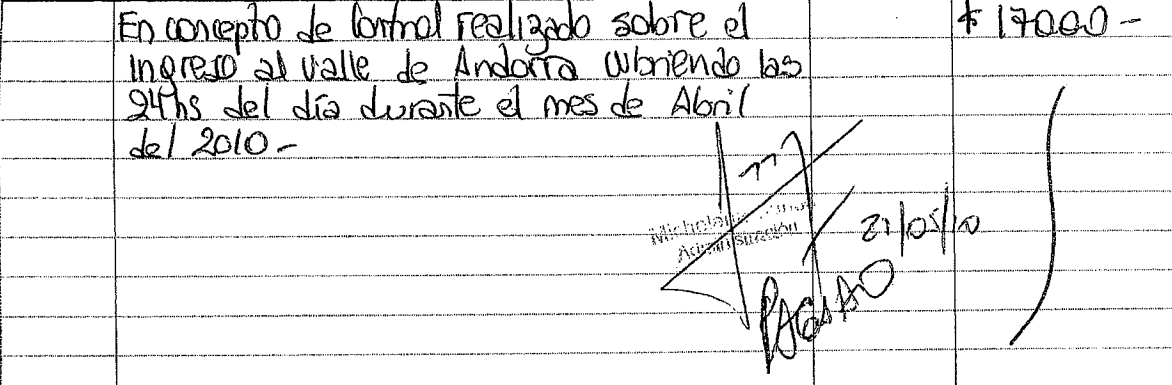 En concepto de Control realizado sobre el $ 17000-
ingreso al valle de Andorra cubriendo las
24hs del día durante el mes de Abril
del 2010-
Administración
21/05/10
PAGADO